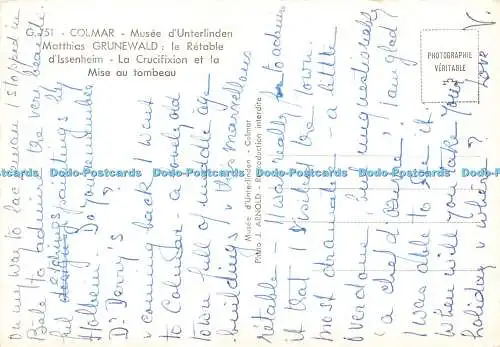 G. 751 - COLMAR - Musée d'Unterlinden
Matthias GRUNEWALD : le Rétable
d'Issenheim - La Crucifixion et la
Mise au tombeau
PHOTOGRAPHIE
VÉRITABLE
Musée d'Unterlinden - Colmar
Photo J. ARNOLD - Reproduction interdite
On my way to Pacy man I stopped in
Bale to admire the very beauti-
ful etchings paintings by
Holbein. Do you remember
Dr Derry's
v coming back I went
to Colmar - a lovely old
town full of middle age
buildings v this marvellous
rétable - It was really to admire
it that I visited the town.
most dramatic - a little
overdone, but unquestionably
'a chef d'œuvre'. I am glad I
was able to see it
When will you take your
holiday v where?
Love
V.
Dodo-Postcards Dodo-Postcards Dodo-Postcards Dodo-Postcards Dodo-Postcards